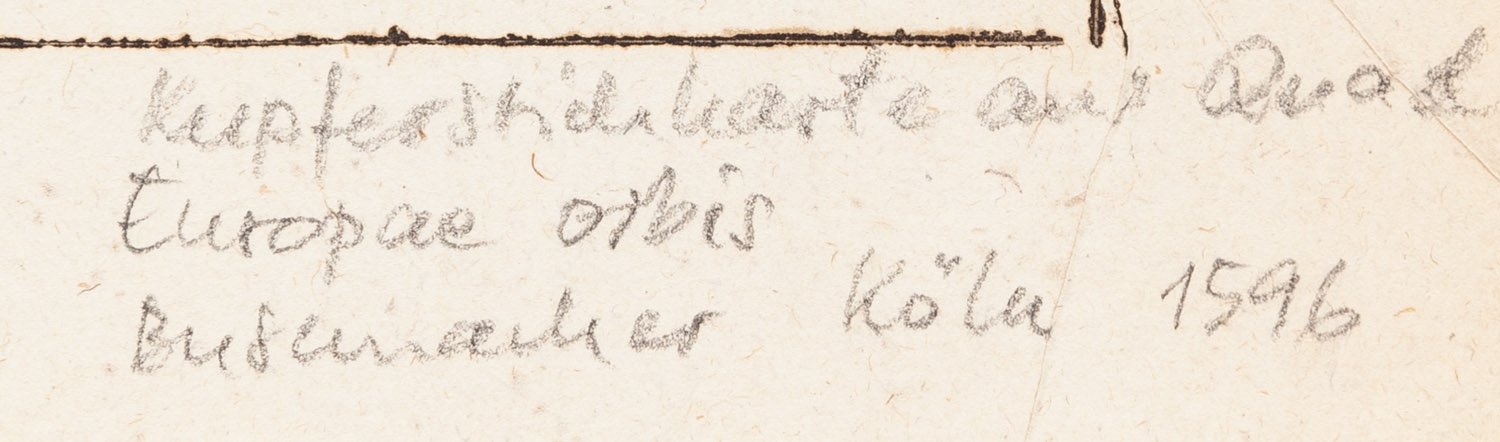 Kupferstichkarte aus Quad
Europae orbis
Busemacher Köln 1596